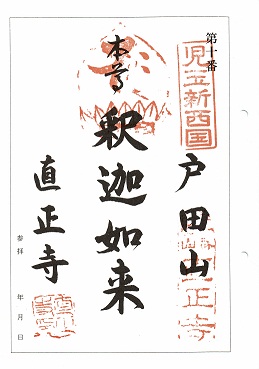 第十番
児玉新西国
戸田山
本尊
釈迦如来
直正寺
参拝 年月日